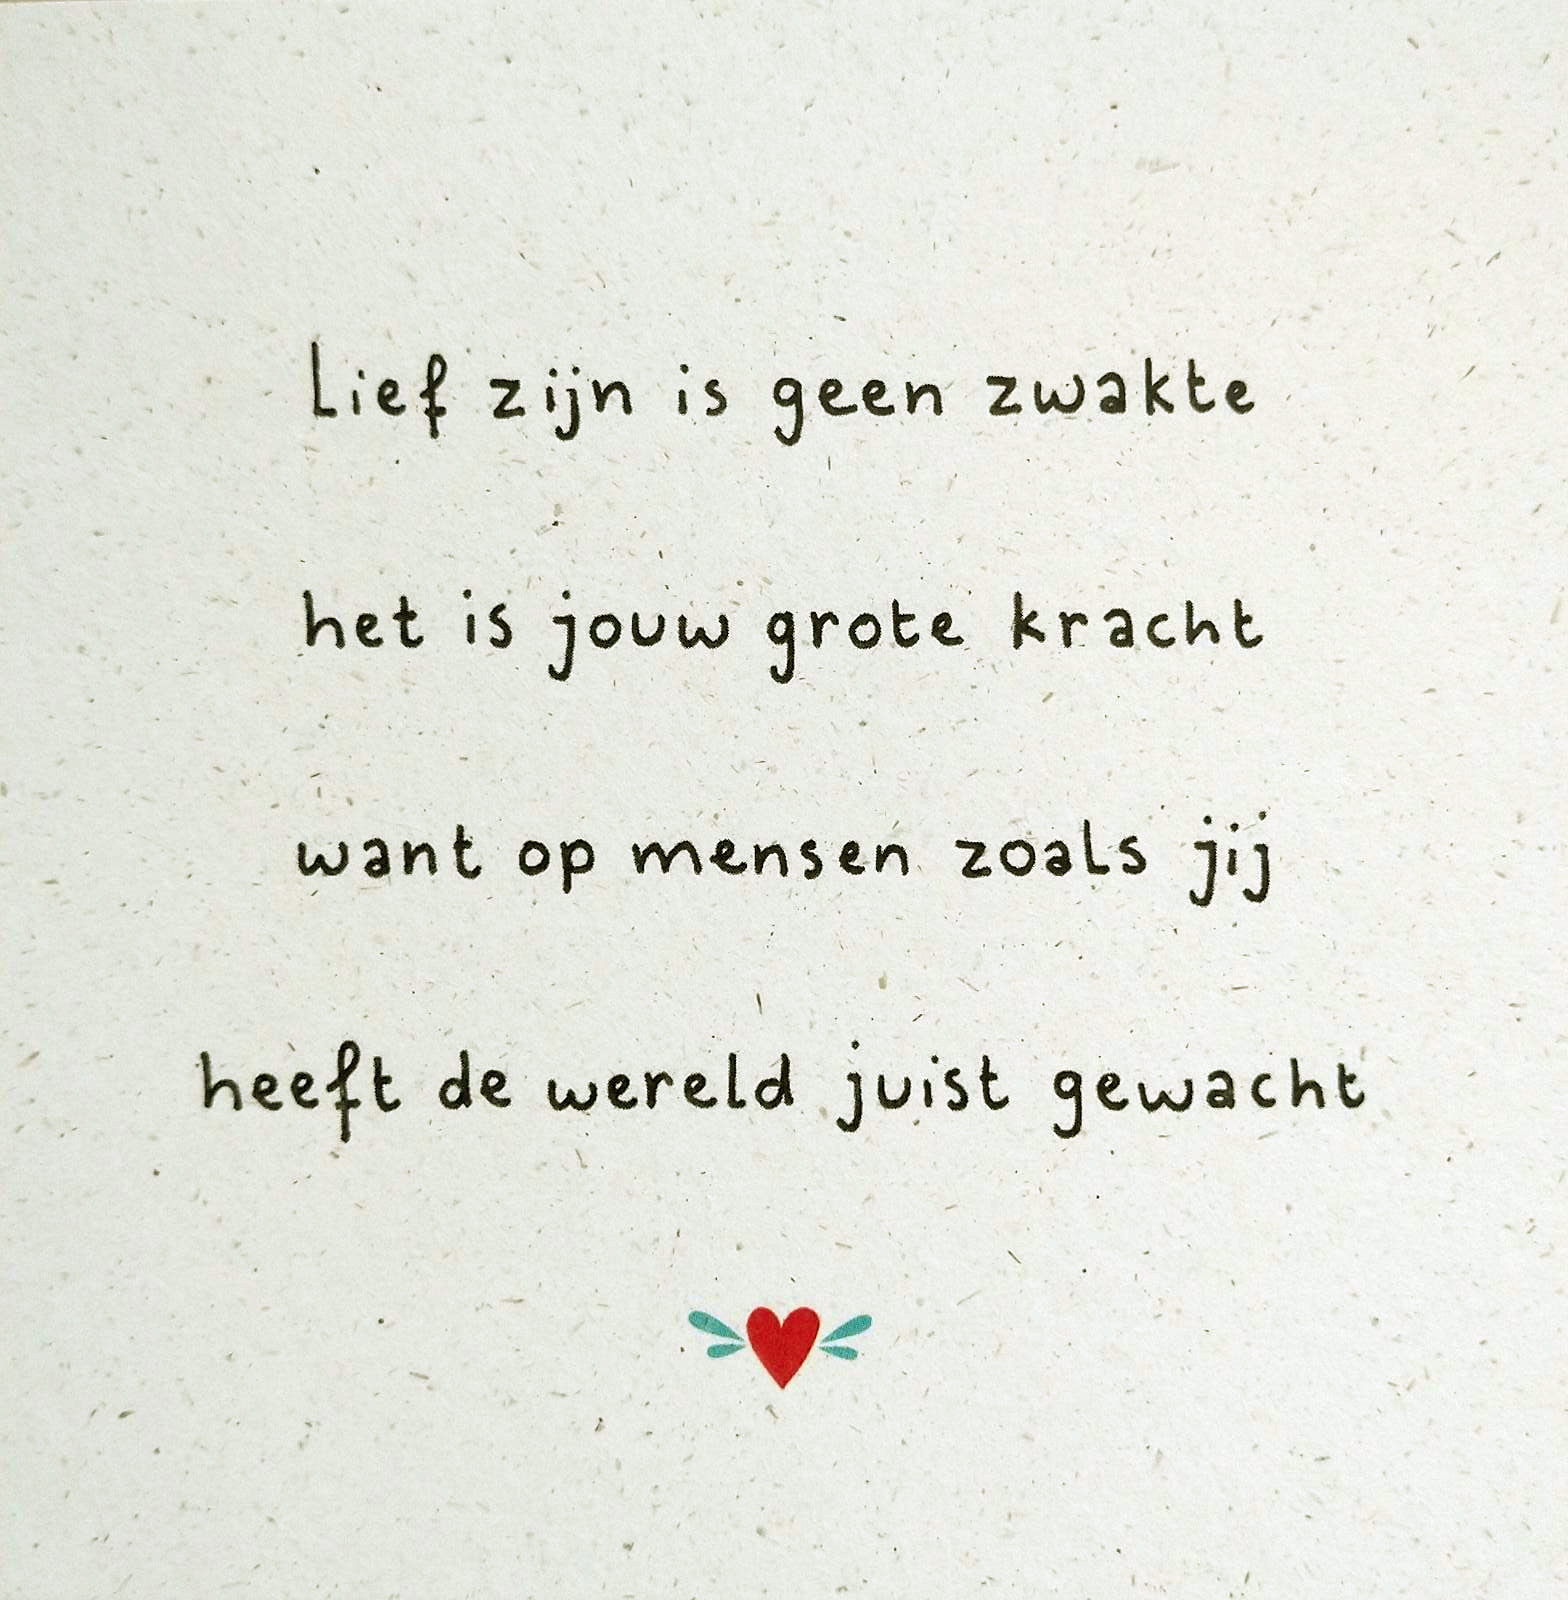 Lief zijn is geen zwakte
het is jouw grote kracht
want op mensen zoals jij
heeft de wereld juist gewacht